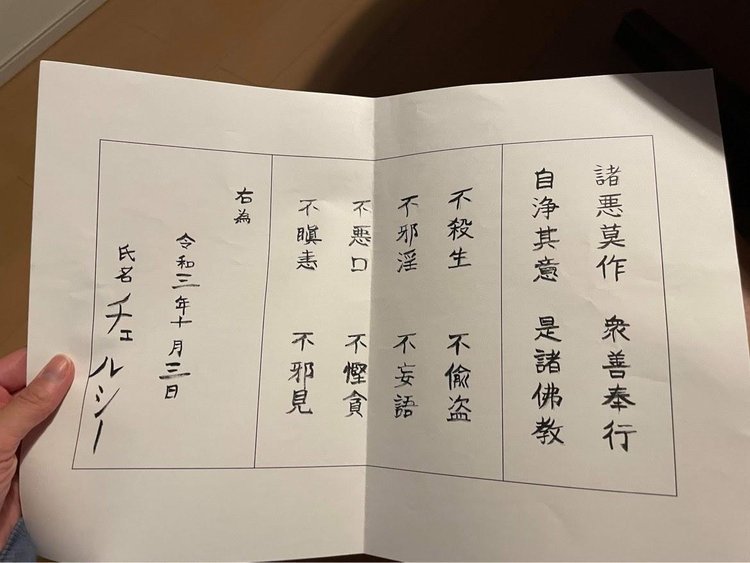 諸悪莫作 衆善奉行
自浄其意 是諸佛教
不殺生 不偸盗
不邪淫 不妄語
不悪口 不慳貪
不瞋恚 不邪見
右為
令和三年十月三日
氏名 チェルシー